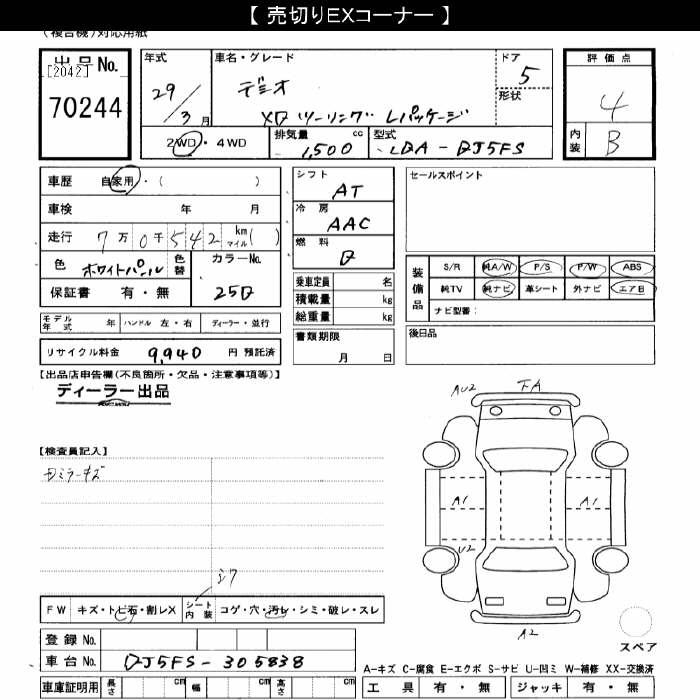 【 売切りEXコーナー 】
(複合機)対応用紙
出品No.
[2042]
70244
年式
29/3月
車名・グレード
デミオ
XD ツーリング Lパッケージ
ドア
5
形状
評価点
4
内装
B
2WD・4WD
排気量 cc
1,500
型式
LDA-DJ5FS
車歴 自家用・( )
車検 年 月
走行 7万0千542 km マイル( )
色 ホワイトパール 色替
カラーNo.
25D
保証書 有・無
モデル年式 年 ハンドル 左・右 ディーラー・並行
リサイクル料金 9,940 円 預託済
シフト
AT
冷房
AAC
燃料
D
乗車定員 名
積載量 kg
総重量 kg
書類期限
月 日
セールスポイント
装備品
S/R 純A/W P/S P/W ABS
純TV 純ナビ 革シート 外ナビ エアB
ナビ型番：
後日品
【出品店申告欄(不良箇所・欠品・注意事項等)】
ディーラー出品
【検査員記入】
ミラーキズ
シワ
FW キズ・トビ石・割レX
シート内装 コゲ・穴・汚レ・シミ・破レ・スレ
登録No.
車台No. DJ5FS-305838
車庫証明用 長さ cm 幅 cm 高さ cm
AU2
FA
A1
A1
U2
A2
スペア
A-キズ C-腐食 E-エクボ S-サビ U-凹ミ W-補修 XX-交換済
工具 有・無 ジャッキ 有・無